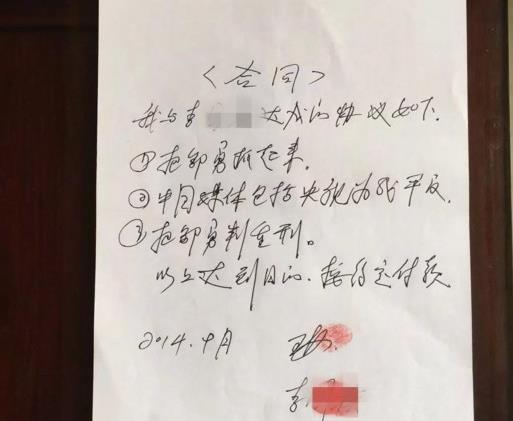 《合同》
我与李 达成的协议如下.
①把邹勇抓起来.
②中国媒体包括央视为我平反.
③把邹勇判重刑。
以上达到目的.按约定付款
2014.十月
王
李